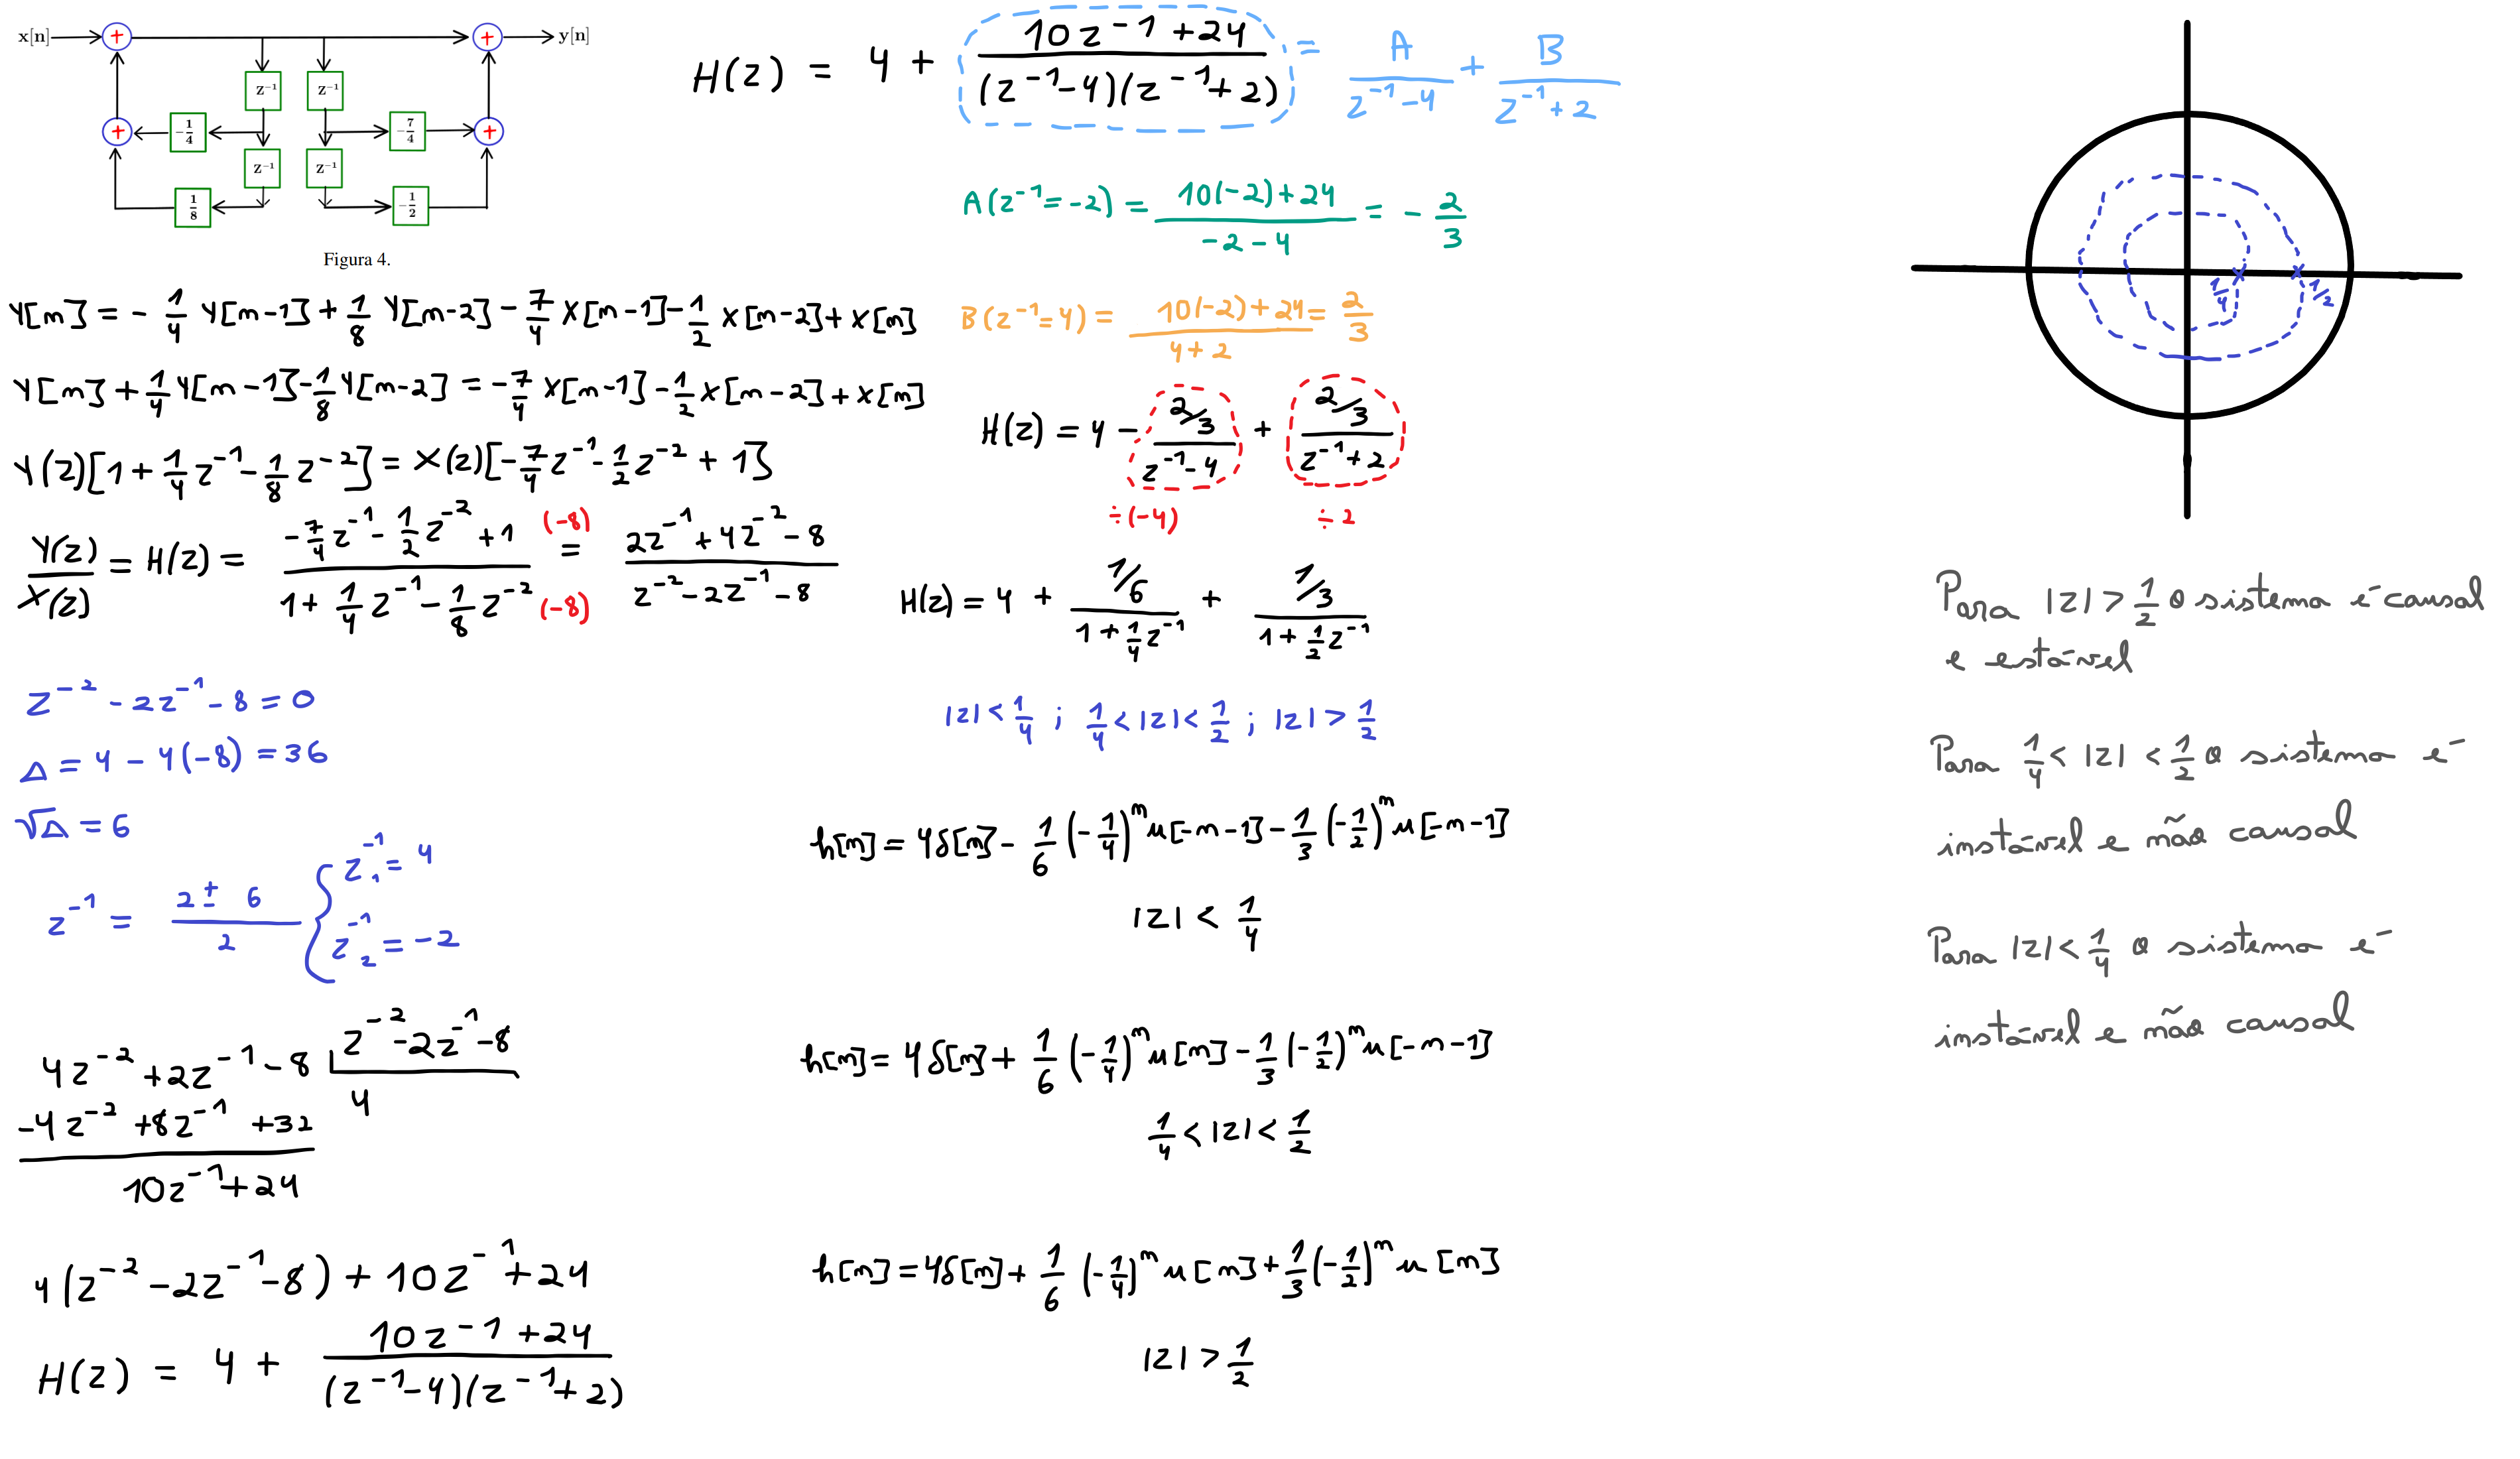 x[n] + + y[n]
Z⁻¹ Z⁻¹
+ -1/4 -7/4 +
Z⁻¹ Z⁻¹
1/8 -1/2
Figura 4.
Y[n] = - 1/4 Y[n-1] + 1/8 Y[n-2] - 7/4 X[n-1] - 1/2 X[n-2] + X[n]
Y[n] + 1/4 Y[n-1] - 1/8 Y[n-2] = - 7/4 X[n-1] - 1/2 X[n-2] + X[n]
Y(z)[1 + 1/4 z⁻¹ - 1/8 z⁻²] = X(z)[- 7/4 z⁻¹ - 1/2 z⁻² + 1]
Y(z)/X(z) = H(z) = (- 7/4 z⁻¹ - 1/2 z⁻² + 1)/(1 + 1/4 z⁻¹ - 1/8 z⁻²) (-8) = (-8) (2z⁻¹ + 4z⁻² - 8)/(z⁻² - 2z⁻¹ - 8)
z⁻² - 2z⁻¹ - 8 = 0
Δ = 4 - 4(-8) = 36
√Δ = 6
z⁻¹ = (2 ± 6)/2 { z₁⁻¹ = 4
z₂⁻¹ = -2
4z⁻² + 2z⁻¹ - 8 | z⁻² - 2z⁻¹ - 8
-4z⁻² + 8z⁻¹ + 32 4
10z⁻¹ + 24
4(z⁻² - 2z⁻¹ - 8) + 10z⁻¹ + 24
H(z) = 4 + (10z⁻¹ + 24)/((z⁻¹ - 4)(z⁻¹ + 2))
H(z) = 4 + (10z⁻¹ + 24)/((z⁻¹ - 4)(z⁻¹ + 2)) = A/(z⁻¹ - 4) + B/(z⁻¹ + 2)
A(z⁻¹ = -2) = (10(-2) + 24)/(-2 - 4) = - 2/3
B(z⁻¹ = 4) = (10(-2) + 24)/(4 + 2) = 2/3
H(z) = 4 - (2/3)/(z⁻¹ - 4) + (2/3)/(z⁻¹ + 2)
÷(-4) ÷2
H(z) = 4 + (1/6)/(1 + 1/4 z⁻¹) + (1/3)/(1 + 1/2 z⁻¹)
|z| < 1/4 ; 1/4 < |z| < 1/2 ; |z| > 1/2
h[n] = 4δ[n] - 1/6 (-1/4)ⁿ u[-n-1] - 1/3 (-1/2)ⁿ u[-n-1]
|z| < 1/4
h[n] = 4δ[n] + 1/6 (-1/4)ⁿ u[n] - 1/3 (-1/2)ⁿ u[-n-1]
1/4 < |z| < 1/2
h[n] = 4δ[n] + 1/6 (-1/4)ⁿ u[n] + 1/3 (-1/2)ⁿ u[n]
|z| > 1/2
1/4 1/2
Para |z| > 1/2 o sistema é causal
e estável
Para 1/4 < |z| < 1/2 o sistema é
instável e não causal
Para |z| < 1/4 o sistema é
instável e não causal